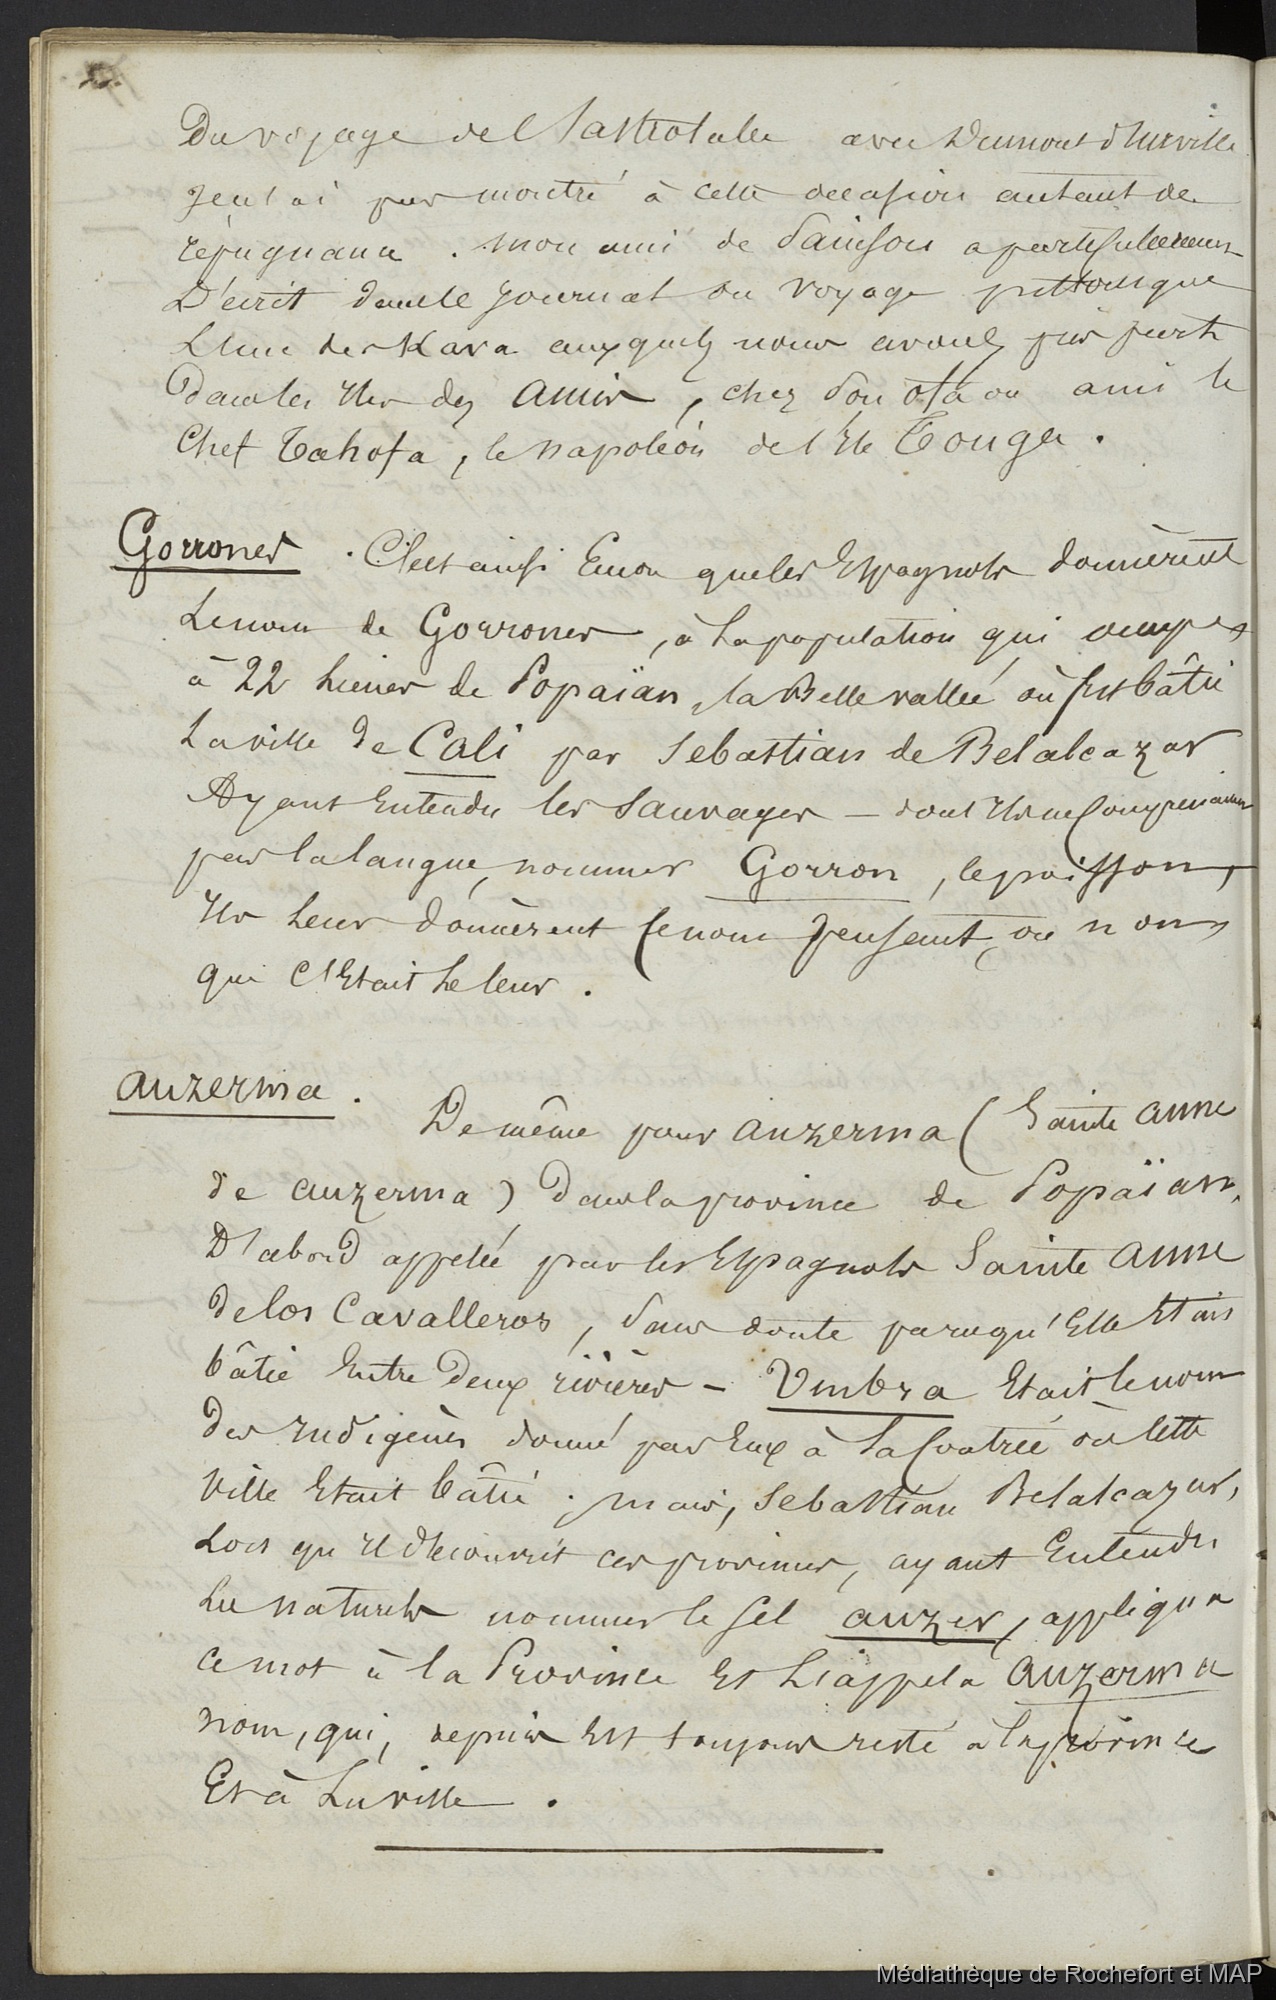 Du voyage de l'astrolabe avec Dumont d'Urville
je n'ai pas montré à cette occasion autant de
répugnance. mon ami de Sainson a parfaitement
Décrit dans le journal du voyage pittoresque
L'une des Kava auxquels nous avons pris part
Dans les Iles des Amis, chez son ofa ou ami le
Chef Tahofa, le napoléon de l'Ile Tonga.
Gorrones. C'est ainsi Encore que les Espagnols donnèrent
Le nom de Gorrones, à la population qui occupe,
à 22 lieues de Popaïan, la Belle vallée où fut bâtie
La ville de Cali par Sebastian de Belalcazar
Ayant Entendu les Sauvages — dont Ils ne Comprenaient
pas la langue, nommer Gorron, le poisson,
Ils leur donnèrent ce nom pensant, ou non,
que C'Etait le leur.
Auzerma.
De même pour Auzerma (Sainte Anne
de Auzerma) Dans la province de Popaïan,
D'abord appelée par les Espagnols Sainte Anne
de los Cavalleros, sans doute parcequ'Elle Etait
bâtie Entre Deux rivières – Umbra Etait le nom
Des Indigènes donné par Eux à la Contrée où cette
ville Etait bâtie. mais, Sebastian Belalcazar,
Lors qu'Il découvrit ces provinces, ayant Entendu
Les naturels nommer le Sel auzer, appliqua
Ce mot à la Province Et L'appela Auzerma
nom, qui, depuis Est toujours resté à la province
Et à La ville.
Médiathèque de Rochefort et MAP